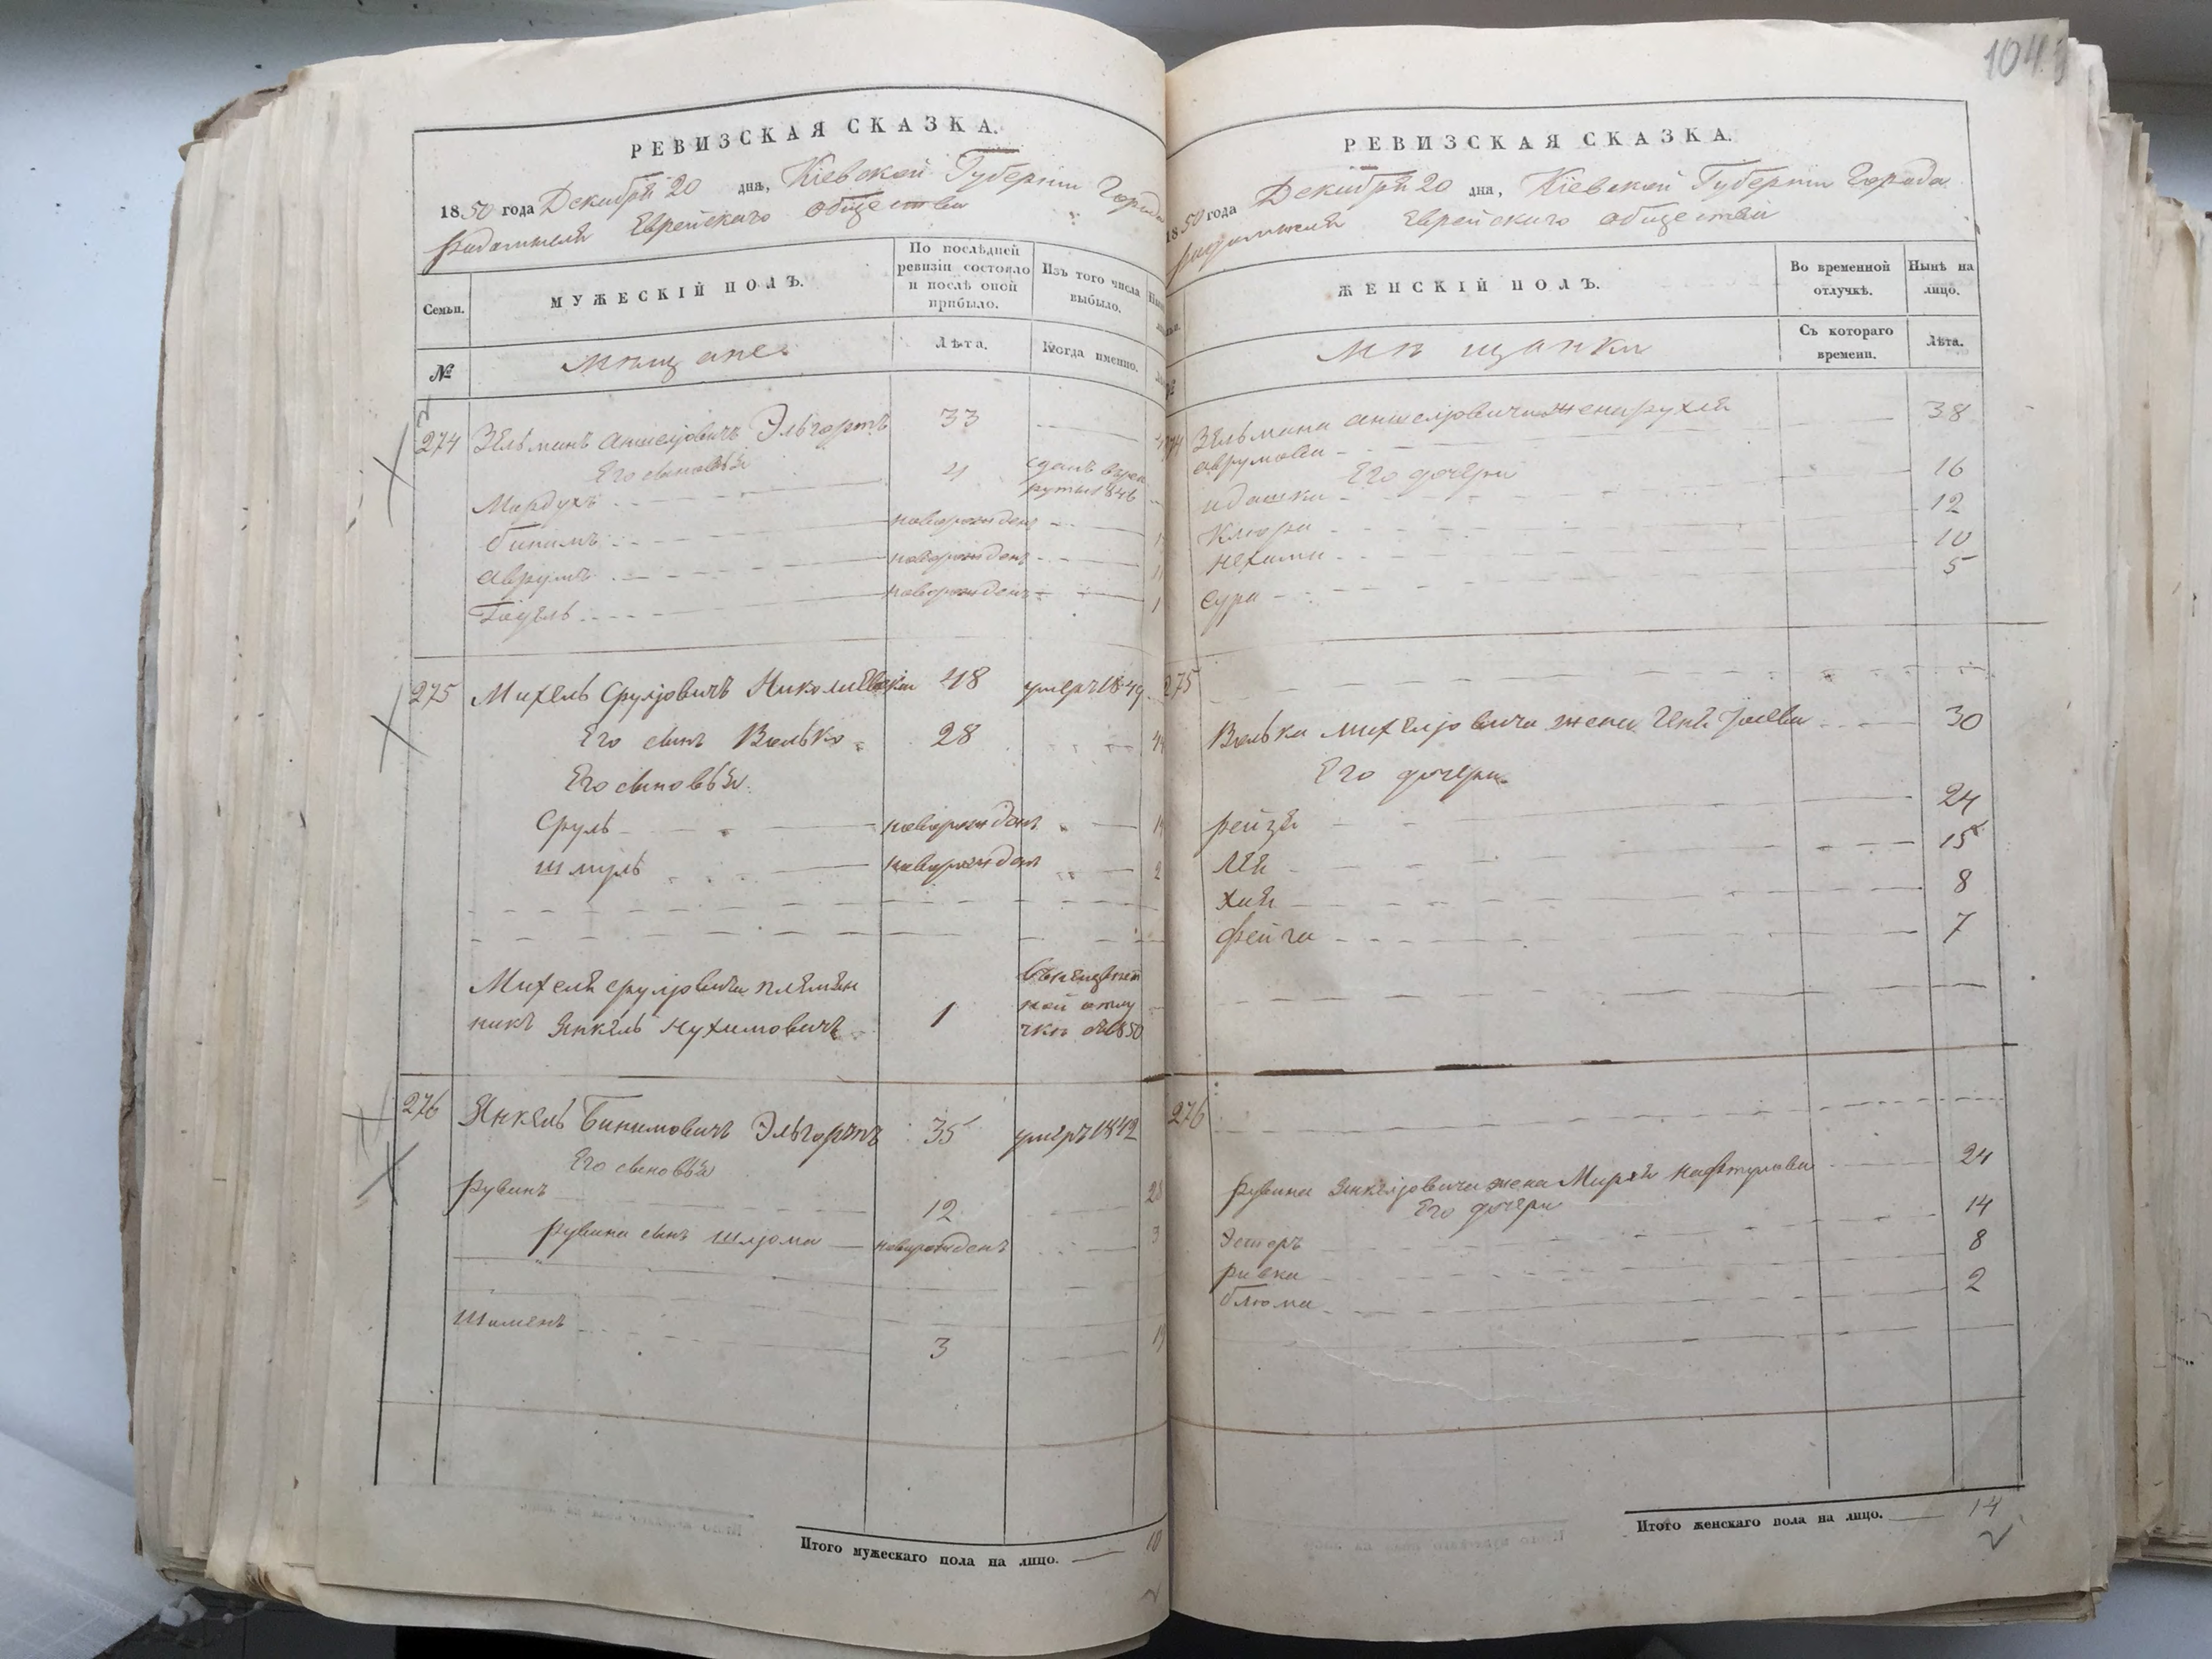 РЕВИЗСКАЯ СКАЗКА.
1850 года Декабря 20 дня, Кіевской Губерніи Города
Радомысля Еврейскаго общества
Семьи.
МУЖЕСКІЙ ПОЛЪ.
По послѣдней ревизіи состояло и послѣ оной прибыло.
Изъ того числа выбыло.
№
мѣщане
Лѣта.
Когда именно.
274 Зельманъ Аншелјовичъ Эльгортъ 33
Его сыновья
Мордухъ 4 сданъ в рекруты 1846
бинимъ новорожденъ
аврумъ новорожденъ
новорожденъ
275 Михель Срулјовичъ Николаевски 48 умеръ 1849
Его сынъ Волько 28
Его сыновья
Сруль новорожденъ
шмуль новорожденъ 2
Михеля срулјовича племян
никъ Янкель Нухимовичъ 1 въ неизвѣст
ной отлу
чкѣ съ 1850
276 Янкель Бинимовичъ Эльгортъ 35 умеръ 1842
Его сыновья
Рувинъ 12 28
Рувина сынъ шлјома новорожденъ 3
3 19
Итого мужескаго пола на лицо. 10
104
РЕВИЗСКАЯ СКАЗКА.
1850 года Декабря 20 дня, Кіевской Губерніи Города
Радомысля Еврейскаго общества
ЖЕНСКІЙ ПОЛЪ.
Во временной отлучкѣ.
Нынѣ на лицо.
мѣщанки
Съ котораго времени.
Лѣта.
Зельмана аншелјовича жена рухля 38
аврумова
Его дочери
16
12
нехама 10
сура 5
275
Волька михелјовича жена 30
Его дочери
рейзя 24
лея 15
хая 8
фейга 7
276
Рувина Янкелјовича жена Миряя Нафтулова 24
Его дочери
Эстеръ 14
ривка 8
блюма 2
Итого женскаго пола на лицо. 14